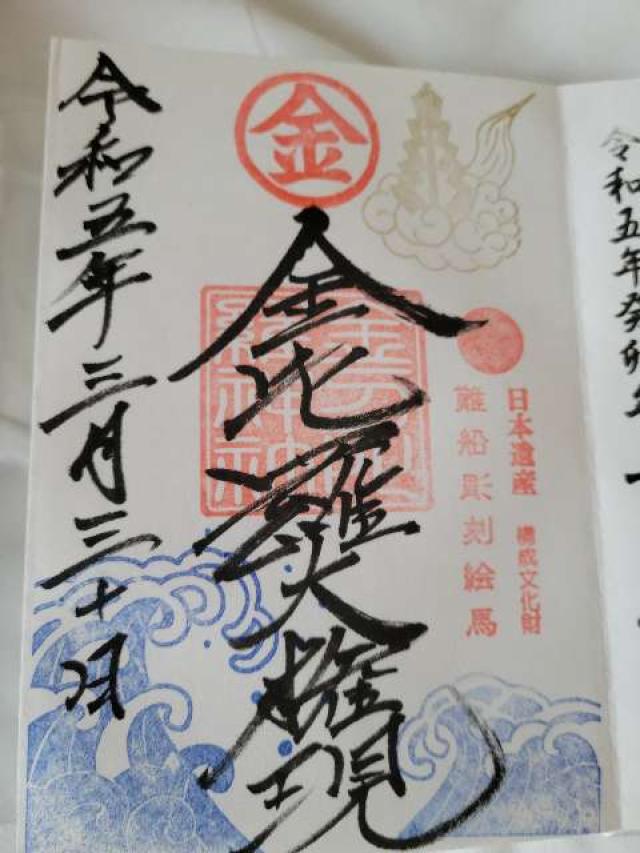 令和五年癸卯
日本遺産　構成文化財
難船彫刻絵馬
金
金比羅大権現
令和五年三月三十日